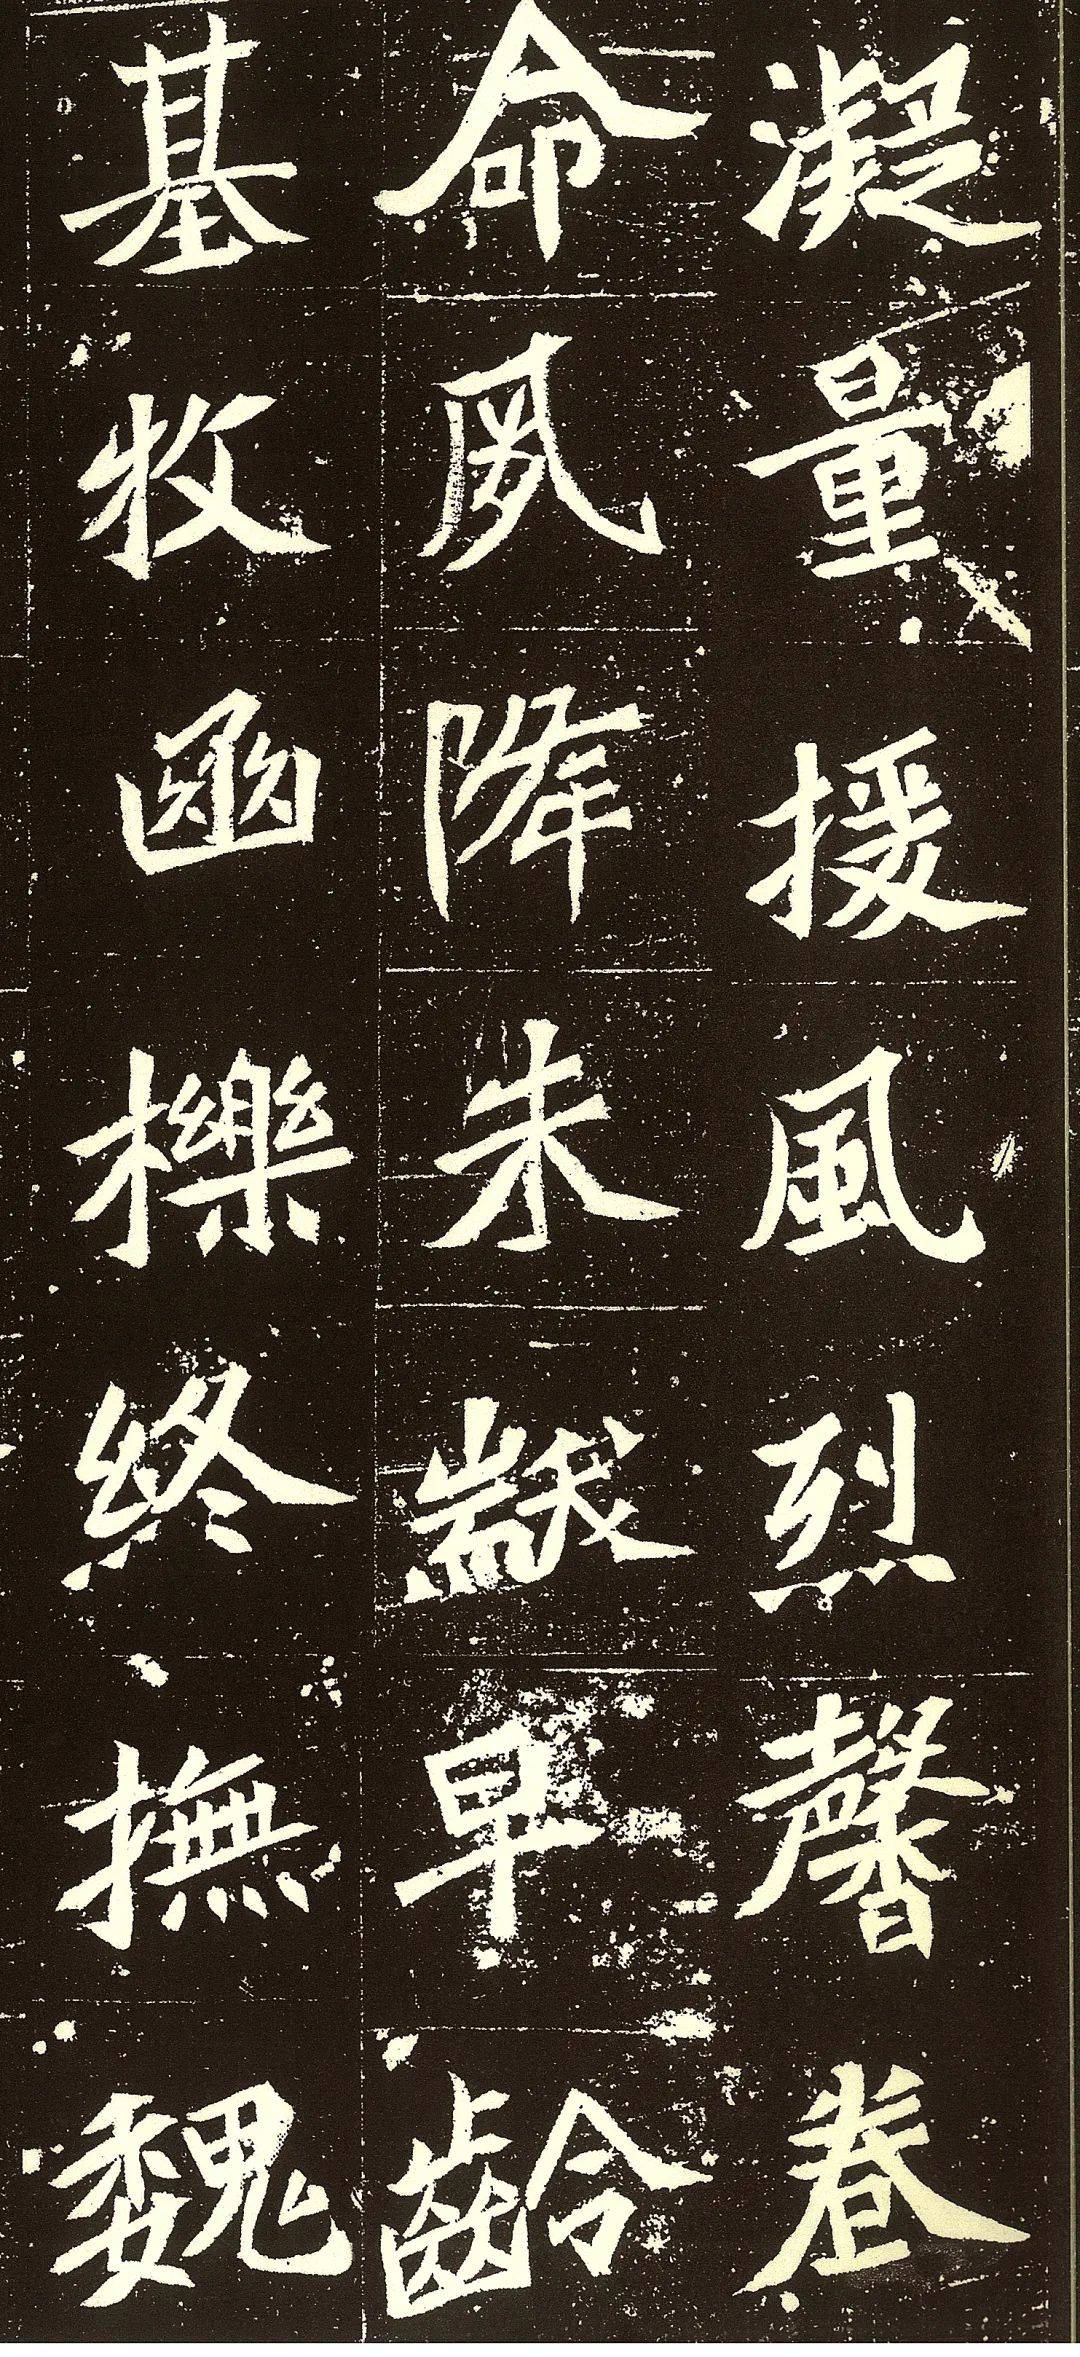 凝量援風烈馨眷
命夙降朱黻早齡
基牧函櫟終撫魏